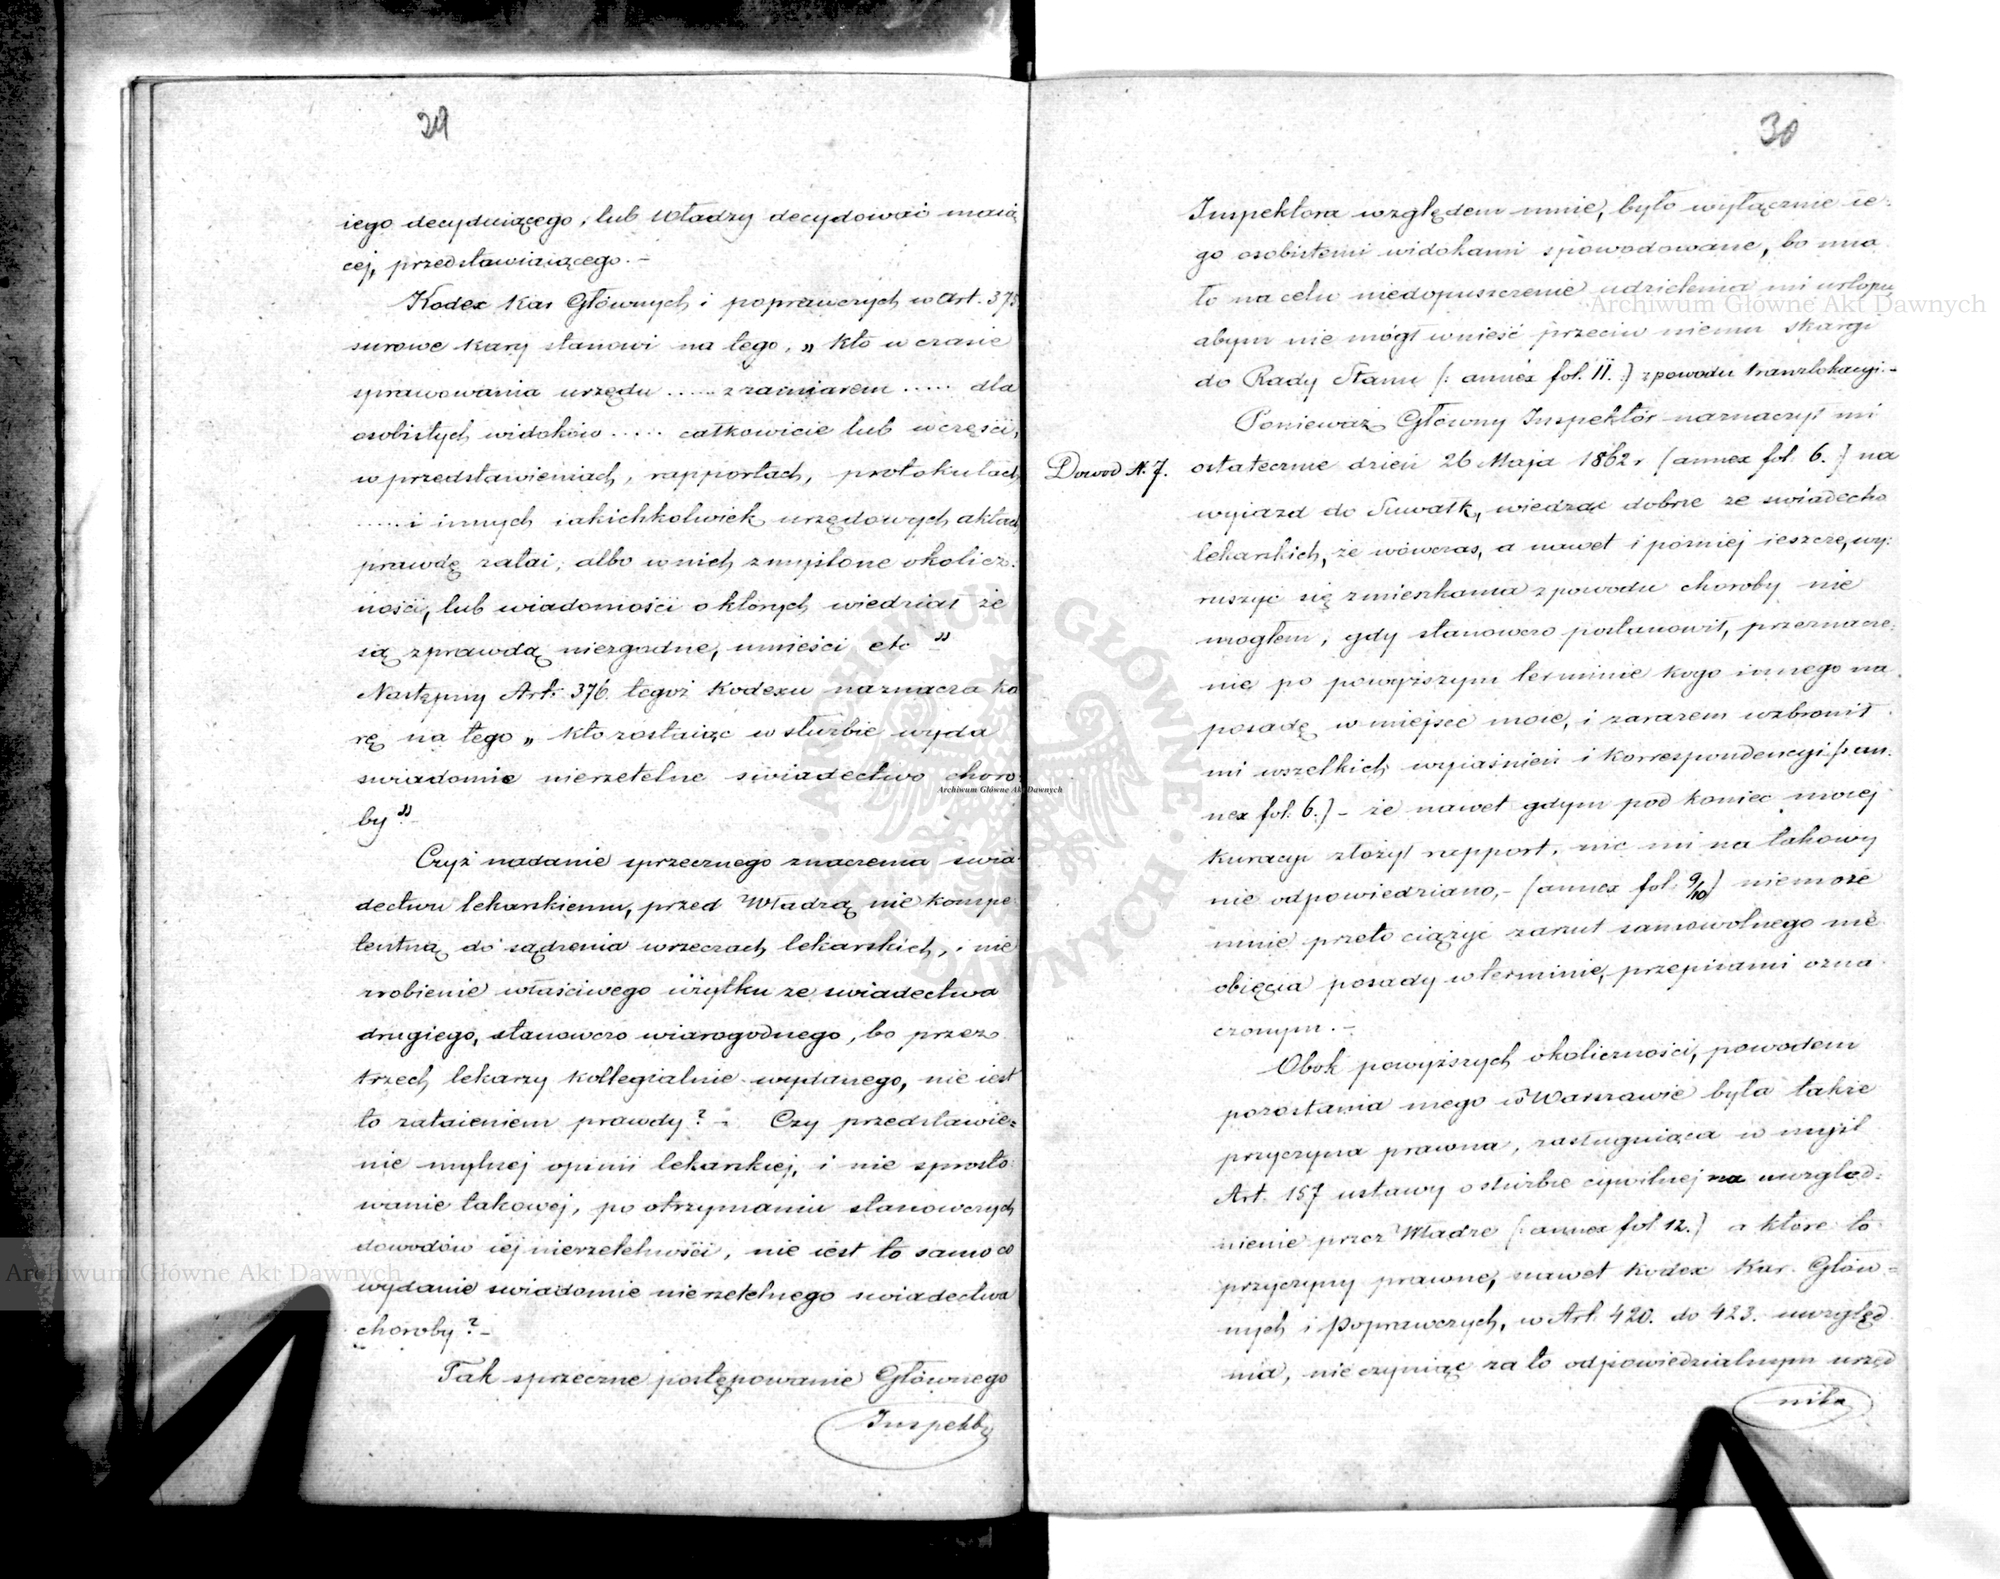 29
iego decyduiącego, lub Władzy decydować maią
cej, przedstawiaiącego. –
Kodex Kar Głównych i poprawczych w Art. 375
surowe kary stanowi na tego, „ kto w czasie
sprawowania urzędu ...... z zamiarem ..... dla
osobistych widoków ..... całkowicie lub w części,
w przedstawieniach, rapportach, protokułach
..... i innych iakichkolwiek urzędowych aktach
prawdę zatai, albo w nich zmyślone okolicz:
ności, lub wiadomości o których wiedział że
są z prawdą niezgodne, umieści etc "
Następny Art. 376. tegoż Kodexu naznacza ka
rę na tego „ kto zostaiąc w służbie wyda
swiadomie nierzetelne świadectwo choro
by" –
Czyż nadanie sprzecznego znaczenia swia
dectwu lekarskiemu, przed Władzą nie kompe
tentną do sądzenia w rzeczach lekarskich, i nie
zrobienie właściwego użytku ze swiadectwa
drugiego, stanowczo wiarogodnego, bo przez
trzech lekarzy kollegialnie wydanego, nie iest
to zataieniem prawdy? – Czy przedstawie=
nie mylnej opinii lekarskiej, i nie sprosto:
wanie takowej, po otrzymaniu stanowczych
dowodów iej nierzetelności, nie iest to samo co
wydanie swiadomie nierzetelnego swiadectwa
choroby? –
Tak sprzeczne postępowanie Głównego
Inspekto
30
Inspektora względem mnie, było wyłącznie ie:
go osobistemi widokami spowodowane, bo mia
ło na celu niedopuszczenie udzielenia mi urlopu
abym nie mógł wnieść przeciw niemu skargi
do Rady Stanu (: annex fol. 11. :) z powodu tranzlokacyi. –
Ponieważ Główny Inspektór naznaczył mi
Dowod N. 7.
ostatecznie dzień 26 Maja 1862 r (annex fol. 6.) na
wyiazd do Suwałk, wiedząc dobrze ze swiadectw
lekarskich, że wówczas, a nawet i pózniej ieszcze, wy:
ruszyć się z mieszkania z powodu choroby nie
mogłem, gdy stanowczo postanowił, przeznacze:
nie po powyższym terminie kogo innego na
posadę w miejsce moie, i zarazem wzbronił
mi wszelkich wyiaśnień i korrespondencyi (: an:
nex fol. 6.) – że nawet gdym pod koniec moiej
kuracyi złożył rapport, nic mi na takowy
nie odpowiedziano, – (annex fol. 9/10) niemoże
mnie przeto ciążyć zarzut samowolnego nie
obięcia posady w terminie, przepisami ozna
czonym. –
Obok powyższych okoliczności, powodem
pozostania mego w Warszawie była także
przyczyna prawna, zasługuiąca w myśl
Art. 157 ustawy o służbie cywilnej na uwzględ:
nienie przez Władze (: annex fol 12.) a które to
przyczyny prawne, nawet Kodex Kar. Głów=
nych i Poprawczych, w Art. 420. do 423. uwzględ
nia, nie czyniąc za to odpowiedzialnym urzęd
nika
Archiwum Główne Akt Dawnych
Archiwum Główne Akt Dawnych
Archiwum Główne Akt Dawnych
ARCHIWUM GŁÓWNE AKT DAWNYCH